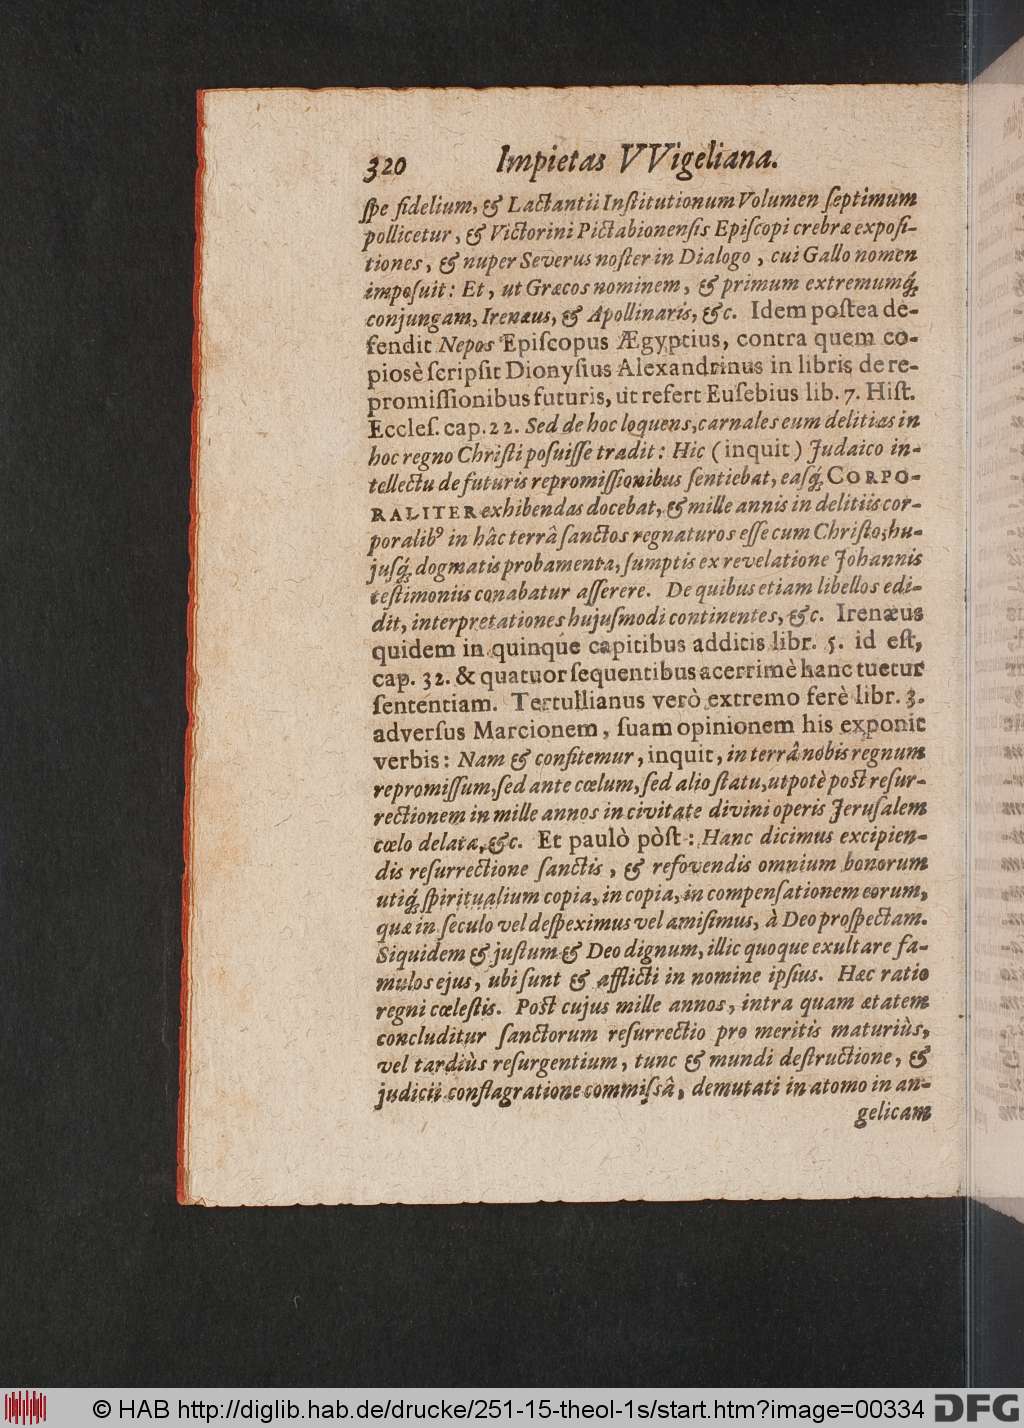 320 Impietas VVigeliana.
ſpe fidelium, & Lactantii Inſtitutionum Volumen ſeptimum
pollicetur, & Victorini Pictabionenſis Epiſcopi crebræ expoſi-
tiones, & nuper Severus noſter in Dialogo, cui Gallo nomen
impoſuit: Et, ut Græcos nominem, & primum extremumq́;
conjungam, Irenæus, & Apollinaris, &c. Idem poſtea de-
fendit Nepos Epiſcopus Ægyptius, contra quem co-
piosè ſcripſit Dionyſius Alexandrinus in libris de re-
promiſſionibus futuris, ut refert Euſebius lib. 7. Hiſt.
Eccleſ. cap. 22. Sed de hoc loquens, carnales eum delitias in
hoc regno Chriſti poſuiſſe tradit: Hic (inquit) Judaico in-
tellectu de futuris repromiſſionibus ſentiebat, easq́; CORPO-
RALITER exhibendas docebat, & mille annis in delitiis cor-
poralibꝰ in hâc terrâ ſanctos regnaturos eſſe cum Chriſto; hu-
jusq́; dogmatis probamenta, ſumptis ex revelatione Johannis
teſtimoniis conabatur aſſerere. De quibus etiam libellos edi-
dit, interpretationes hujuſmodi continentes, &c. Irenæus
quidem in quinque capitibus additis libr. 5. id eſt,
cap. 32. & quatuor ſequentibus acerrimè hanc tuetur
ſententiam. Tertullianus verò extremo ferè libr. 3.
adverſus Marcionem, ſuam opinionem his exponit
verbis: Nam & confitemur, inquit, in terrâ nobis regnum
repromiſſum, ſed ante cœlum, ſed alio ſtatu, utpotè poſt reſur-
rectionem in mille annos in civitate divini operis Jeruſalem
cœlo delata, &c. Et paulò pòſt: Hanc dicimus excipien-
dis reſurrectione ſanctis, & refovendis omnium bonorum
utiq́; ſpiritualium copia, in copia, in compenſationem eorum,
quæ in ſeculo vel deſpeximus vel amiſimus, à Deo proſpectam.
Siquidem & juſtum & Deo dignum, illic quoque exultare fa-
mulos ejus, ubi ſunt & afflicti in nomine ipſius. Hæc ratio
regni cœleſtis. Poſt cujus mille annos, intra quam ætatem
concluditur ſanctorum reſurrectio pro meritis maturiùs,
vel tardiùs reſurgentium, tunc & mundi deſtructione, &
judicii conflagratione commiſsâ, demutati in atomo in an-
gelicam
© HAB http://diglib.hab.de/drucke/251-15-theol-1s/start.htm?image=00334
DFG